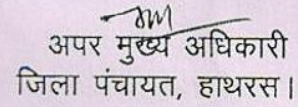 अपर मुख्य अधिकारी
जिला पंचायत, हाथरस।